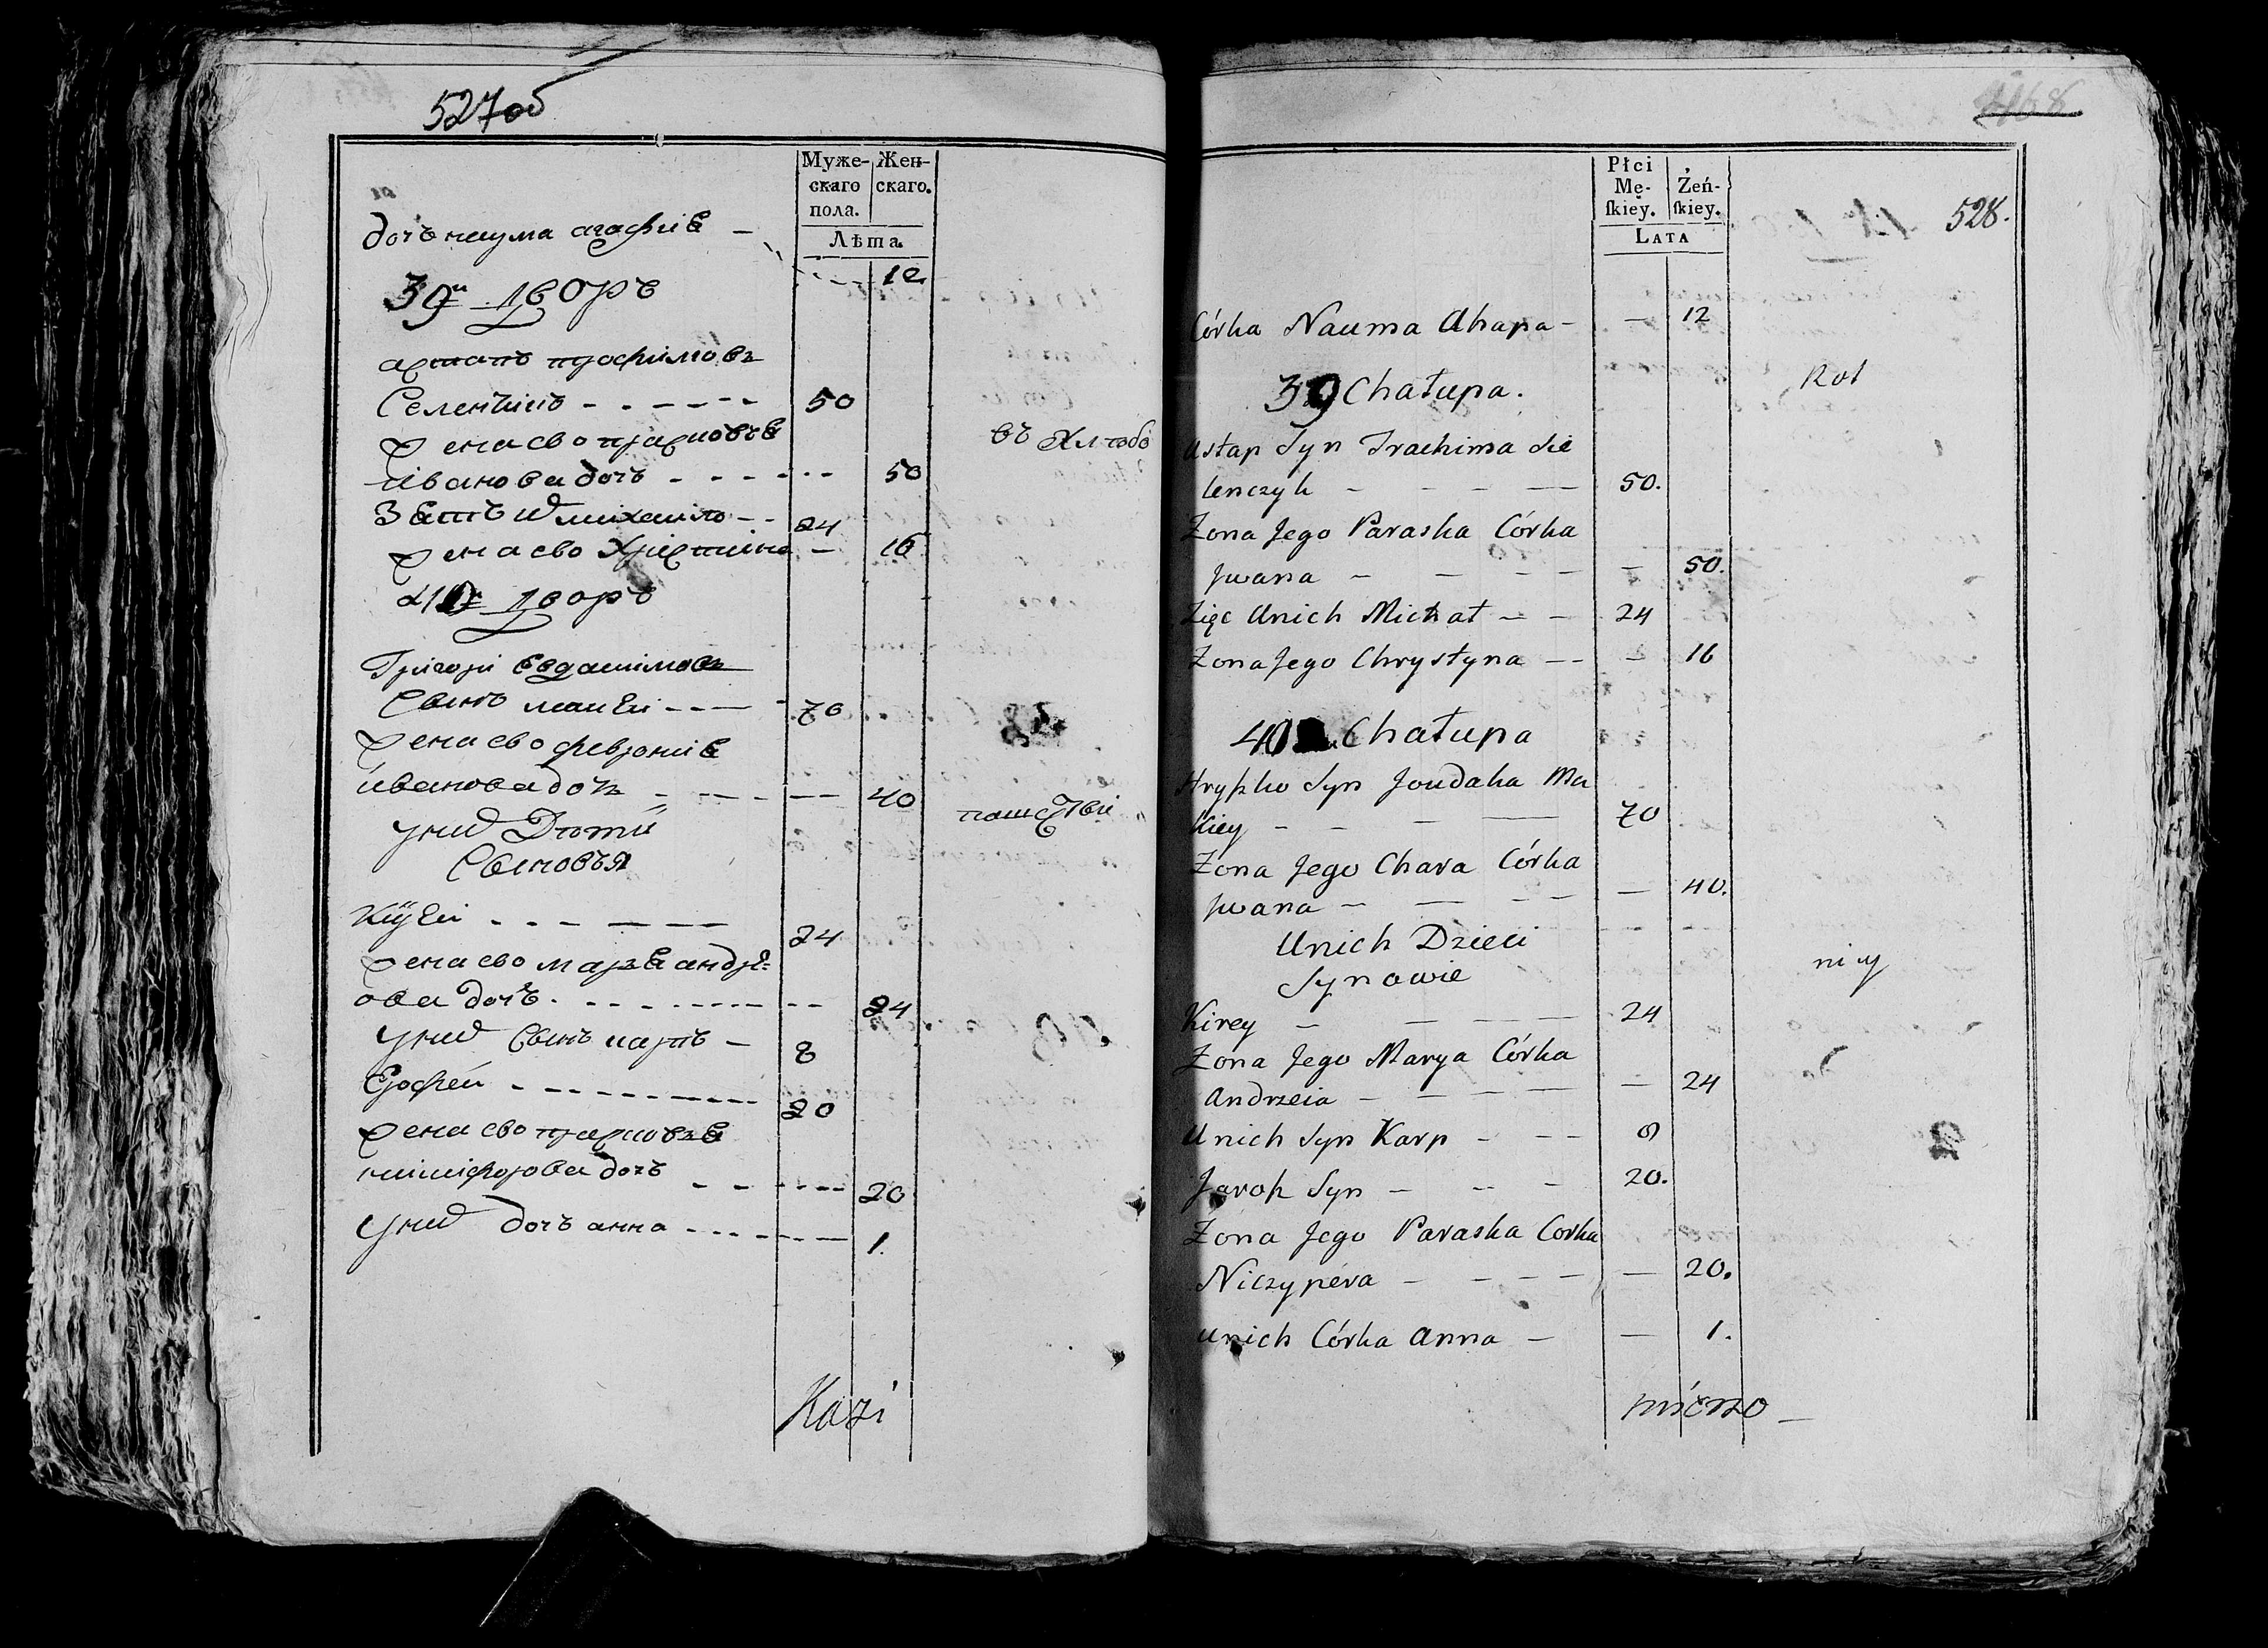 527об
Муже- Жен-
скаго скаго.
пола.
Лѣта
дочь наума агафиѣ –
12
39й двор
астапъ трофимовъ
селенчикъ - - - - - - 50
жена ево прасковѣѣ
иванова дочь - - - - - - 50
въ
зѣть их михайло - - 24
жена ево христина – 16
40й двор
Григори евдакимовъ
сынъ макѣи - - - - 70
жена ево феврониѣ
иванова доч - - - - - 40
пашествѣи
у них дѣти
сыновья
Кирѣи - - - - - - 24
жена ево марѣѣ андрѣ=
ова дочь - - - - - - - - 24
у них сынъ карпъ – 8
Ерофеи - - - - - - - - - 20
жена ево прасковѣѣ
никифорова дочь - - - - - 20
у них дочь анна - - - - - - 1.
Kazi
528.
Płci
Mę- Żeń-
ſkiey. ſkiey.
Lata
Córka Nauma Ahapa – – 12
39 Chałupa.
Rol
Astap Syn Trachima Sie
lenczyk – – – – – 50.
Zona Jego Paraska Córka
Jwana – – – – – 50.
Zięc Unich Michał – – 24
Zona Jego Chrystyna – – – 16
40 Chałupa
Hryſzko Syn Joudaka Ma
kiey – – – – 70
Zona Jego Chara Córka
Jwana – – – – – 40.
Unich Dzieci
Synowie
niczy
Kirey – – – – – 24
Zona Jego Marya Córka
Andrzeia – – – – – – 24
Unich Syn Karp – – – 8
Jaroſz Syn – – – 20.
Zona Jego Paraska Corka
Niczypéra – – – – – 20.
Unich Córka Anna – – 1.
mierzo –